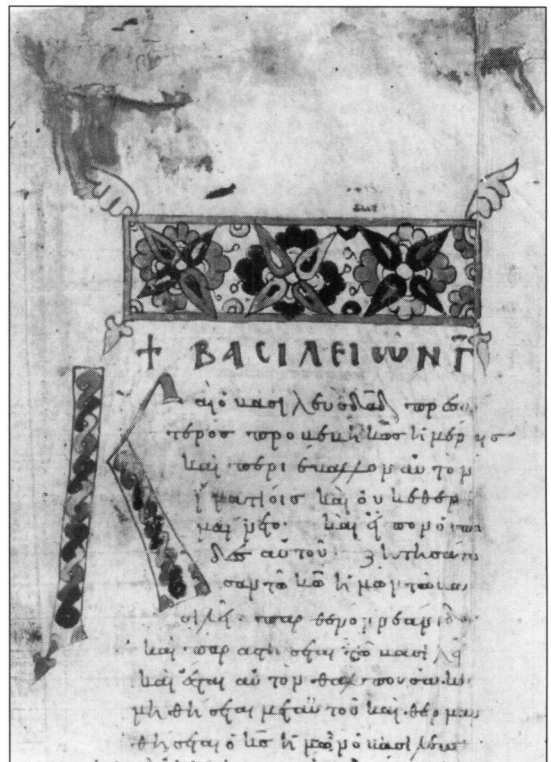 + ΒΑCΙΛΕΙΩΝ Γ
Καὶ ὁ βασιλεὺς δαδ πρεσβύ
τερος προβεβηκὼς ἡμέραις
καὶ περιέβαλλον αὐτὸν
ἱματίοις καὶ οὐκ ἐθερ
μαίνετο· καὶ εἶπον οἱ παῖ
δες αὐτοῦ ζητησάτω
σαν τῶ κω ἡμῶν τῶ βα
σιλεῖ παρθένον νεάνιδα
καὶ παραστήσεται τῶ βασιλεῖ
καὶ ἔσται αὐτὸν θάλπουσα κοι
μηθήσεται μετ' αὐτοῦ καὶ θερμαν
θήσεται ὁ κς ἡμῶν ὁ βασιλεύς